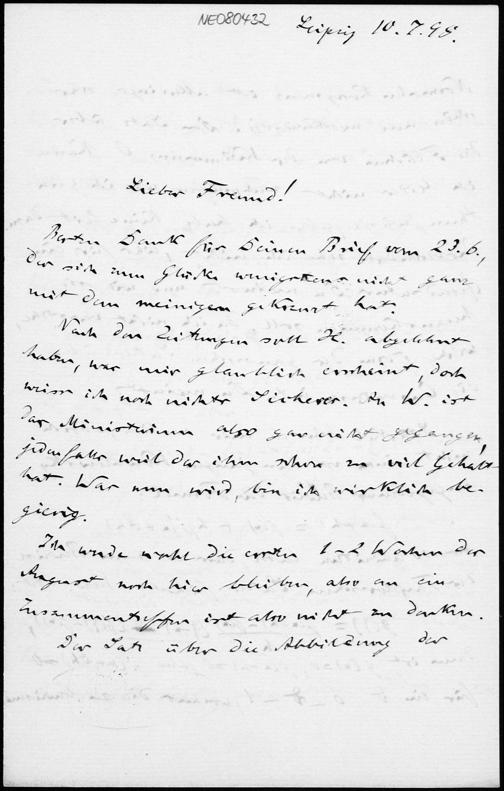 NE080432
Leipzig 10.7.98.
Lieber Freund!
Besten Dank für Deinen Brief vom 23.6.,
der sich zum Glück wenigstens nicht ganz
mit dem meinigen gekreuzt hat.
Nach den Zeitungen soll H. abgelehnt
haben, was mir glaublich erscheint, doch
weiss ich noch nichts Sicheres. An W. ist
das Ministerium also gar nicht gegangen,
jedenfalls weil der ihm schon zu viel Gehalt
hat. Was nun wird, bin ich wirklich be-
gierig.
Ich werde wohl die ersten 1-2 Wochen des
August noch hier bleiben, also an ein
Zusammentreffen ist also nicht zu denken.
Der Satz über die Abbildung der